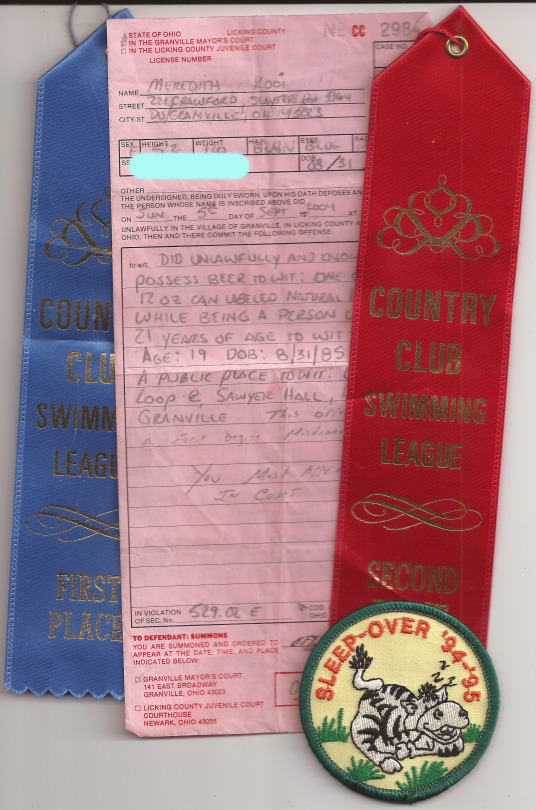 STATE OF OHIO LICKING COUNTY
IN THE GRANVILLE MAYOR'S COURT
IN THE LICKING COUNTY JUVENILE COURT
LICENSE NUMBER
No CC 2984
CASE NO.
NAME MEREDITH KOOI
STREET 221 CRAWFORD, SLAYTER
CITY-ST. DU/GRANVILLE, OH 43023
SEX HEIGHT WEIGHT HAIR EYES
F 5'2 120
SS DOB
08/31
OTHER
THE UNDERSIGNED, BEING DULY SWORN, UPON HIS OATH DEPOSES AND
THE PERSON WHOSE NAME IS INSCRIBED ABOVE DID
ON SUN THE 5th DAY OF SEPT 2004 AT
UNLAWFULLY IN THE VILLAGE OF GRANVILLE, IN LICKING COUNTY A
OHIO, THEN AND THERE COMMIT THE FOLLOWING OFFENSE:
to wit: DID UNLAWFULLY AND KNOW
POSSESS BEER TO WIT: ONE
12 OZ CAN LABELED NATURAL
WHILE BEING A PERSON U
21 YEARS OF AGE TO WIT
AGE: 19 DOB: 8/31/85
A PUBLIC PLACE TO WIT:
LOOP & SAWYER HALL,
GRANVILLE This offe
a first degree Misdeme
YOU MUST APPE
IN COURT
IN VIOLATION
OF SEC. No. 529.02 E
COD.
TO DEFENDANT: SUMMONS
YOU ARE SUMMONED AND ORDERED TO
APPEAR AT THE DATE, TIME, AND PLACE
INDICATED BELOW:
GRANVILLE MAYOR'S COURT
141 EAST BROADWAY
GRANVILLE, OHIO 43023
LICKING COUNTY JUVENILE COURT
COURTHOUSE
NEWARK, OHIO 43055
COUN
CLU
SWIMM
LEAGU
FIRST
PLACE
COUNTRY
CLUB
SWIMMING
LEAGUE
SECOND
SLEEP-OVER '94-'95
z z z